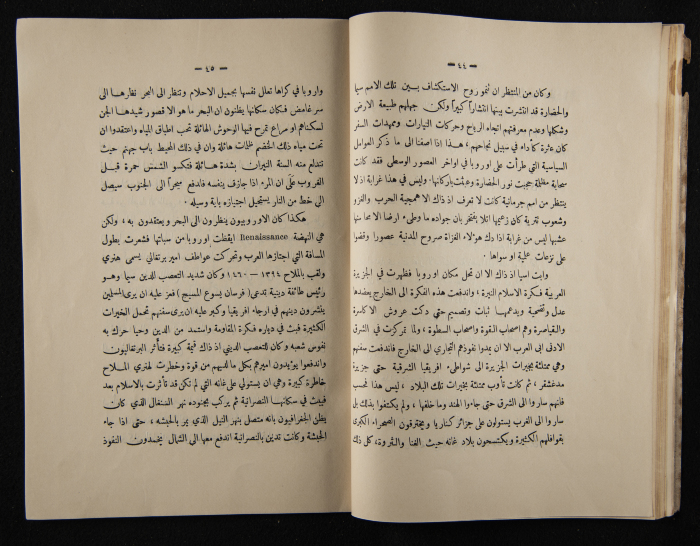 — ٤٤ —
وكان من المنتظر ان تنمو روح الاستكشاف بين تلك الامم سيما
والحضارة قد انتشرت بينها انتشاراً كبيراً ولكن جهلهم طبيعة الارض
وشكلها وعدم معرفتهم اتجاه الرياح وحركات التيارات وممهدات السفر
كان عثرة كأداء في سبيل نجاحهم ؛ هذا اذا اضفنا الى ما ذكر العوامل
السياسية التي طرأت على اوروبا في اواخر العصور الوسطى فقد كانت
سحابة مظلمة حجبت نور الحضارة وعمّت باركانها. وليس في هذا غرابة اذ لا
ينتظر من امم جرمانية كانت لا تعرف اذ ذاك الا همجية الحرب والغزو
وشعوب تترية كان زعيمها اتلا يفتخر بان جواده ما وطىء ارضا الا محا منها
عشبها ليس من غرابة اذا دك هؤلاء الغزاة صروح المدنية عصورا وقضوا
على نزعات علمية او سواها .
وابت اسيا اذ ذاك الا ان تحل مكان اوروبا فظهرت في الجزيرة
العربية فكرة الاسلام النيرة ، واندفعت هذه الفكرة الى الخارج يعضدها
عدل وتضحية ويدعمها ثبات وتصميم حتى دكت عروش الاكاسرة
والقياصرة وهم اصحاب القوة واصحاب السطوة ، ولما تمركزت في الشرق
الادنى ابى العرب الا ان يمدوا نفوذهم التجاري الى الخارج فاندفعت سفنهم
وهي ممتلئة بخيرات الجزيرة الى شواطىء افريقيا الشرقية حتى جزيرة
مدغشقر ، ثم كانت تأوب ممتلئة بخيرات تلك البلاد ، ليس هذا فحسب
فانهم ساروا الى الشرق حتى جاءوا الهند وما خلفها ، ولم يكتفوا بذلك بل
ساروا الى الغرب يستولون على جزائر كناريا ويخترقون الصحراء الكبرى
بقوافلهم الكثيرة ويكتسحون بلاد غانه حيث الغنا والثروة، كل ذلك
— ٤٥ —
واروبا في كراها تعلل نفسها بجميل الاحلام وتنظر الى البحر نظارها الى
سر غامض فكان سكانها يظنون ان البحر ما هو الا قصور شيدها الجن
لسكناهم او مراع تمرح فيها الوحوش الهائلة تحب اطباق المياه واعتقدوا ان
تحت مياه ذلك الخضم ظلمات هائلة وان في ذلك المحيط باب جهنم حيث
تندلع منه السنة النيران بشدة هائلة فتكسو الشمس حمرة قبل
الغروب على ان المرء اذا جازف بنفسه فاندفع سحراً الى الجنوب سيصل
الى خط من النار يستحيل اجتيازه باية وسيلة .
هكذا كان الاوروبيون ينظرون الى البحر ويعتقدون به ، ولكن
هي النهضة Renaissance ايقظت اوروبا من سباتها فشعرت بطول
المسافة التي اجتازها العرب وتحركت عواطف امير برتغالي يسمى هنري
ولقب بالملاح ١٣٩٤ — ١٤٦٠ وكان شديد التعصب للدين سيما وهو
رئيس طائفة دينية تدعى ( فرسان يسوع المسيح ) فعز عليه ان يرى المسلمين
ينشرون دينهم في ارجاء افريقيا وكبر عليه ان يرى سفنهم تحمل الخيرات
الكثيرة فبث في دياره فكرة المقاومة واستمد من الدين وحيا حرك به
نفوس شعبه وكان للتعصب الديني اذ ذاك قيمة كبيرة فتأثر البرتغاليون
واندفعوا يؤيدون اميرهم بكل ما لديهم من قوة وخطرت لهنري الملاح
خاطرة كبيرة وهي ان يستولي على غانه التي لم تكن قد تأثرت بالاسلام بعد
فيبث في سكانها النصرانية ثم يركب بجنوده نهر السنغال الذي كان
يظن الجغرافيون بانه متصل بنهر النيل الذي يمر بالحبشه ، حتى اذا جاء
الحبشة وكانت تدين بالنصرانية اندفع معها الى الشمال يخمدون النفوذ